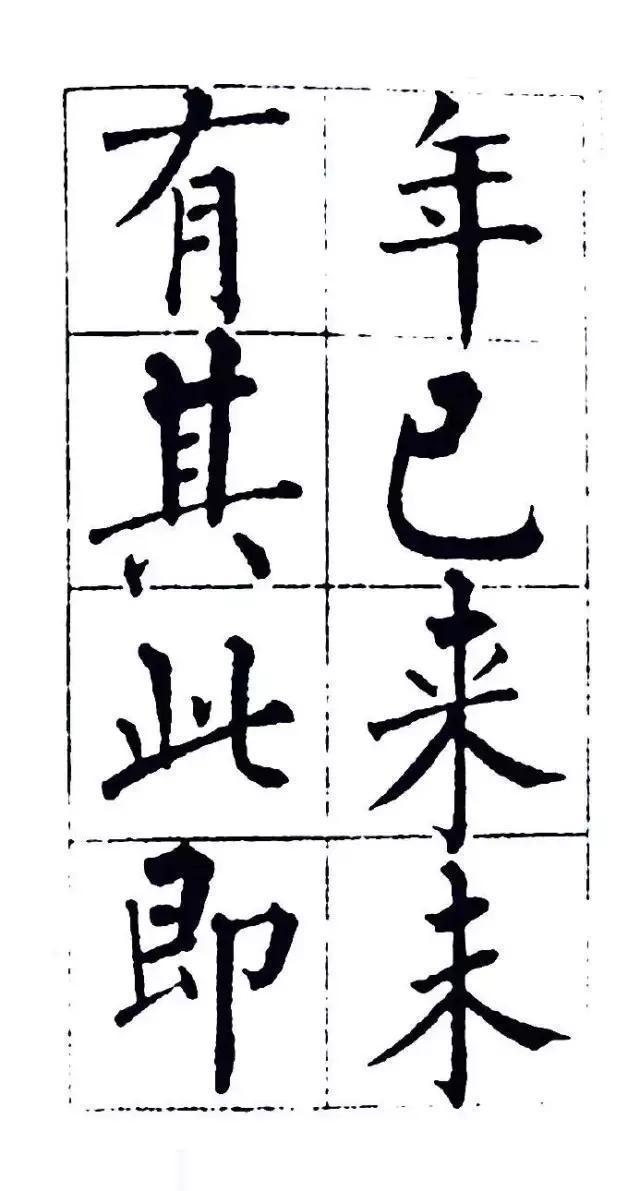 年已来未
有其此即